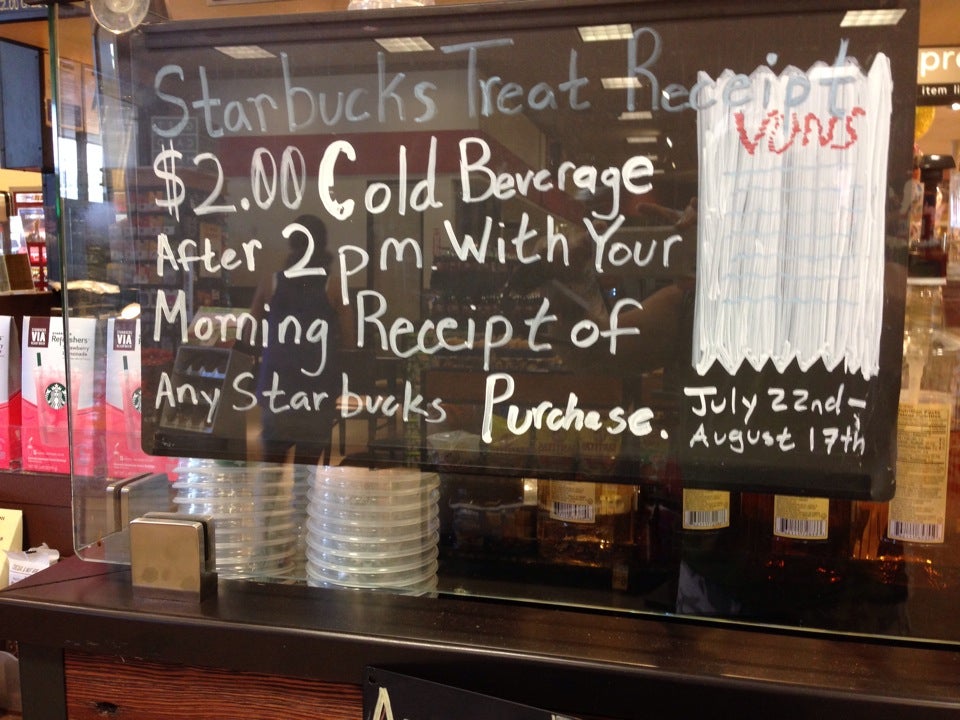 Starbucks Treat Receipt
VONS
$2.00 Cold Beverage
After 2pm. With Your
Morning Receipt of
Any Starbucks Purchase.
July 22nd-
August 17th
VIA
VIA
item li